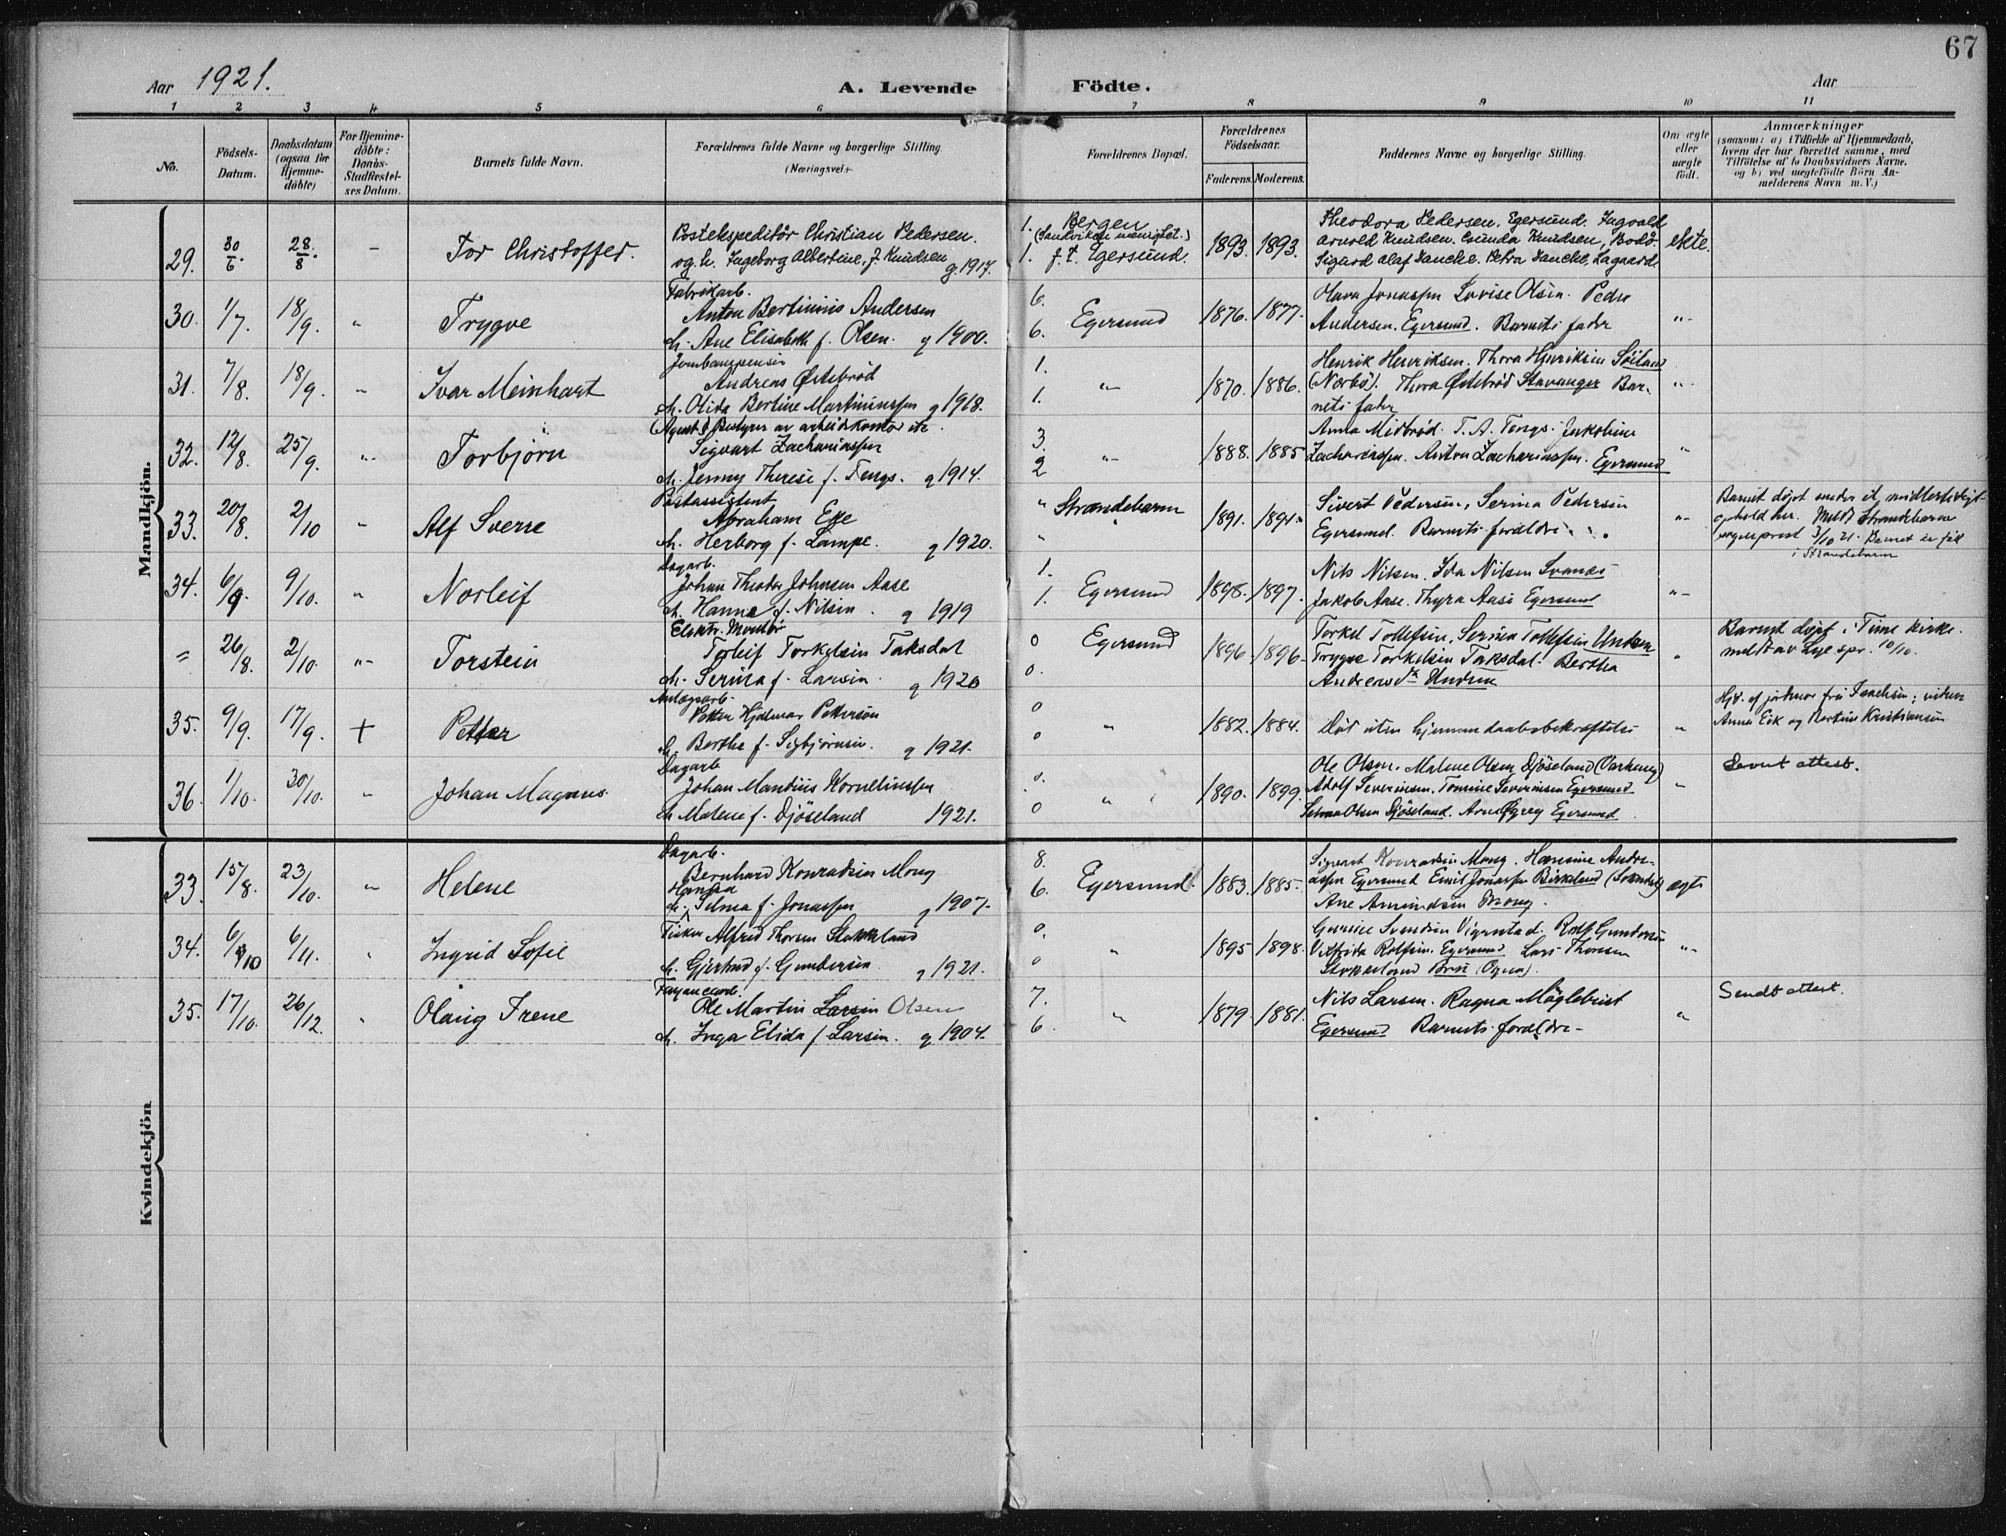 67
Aar 1921.
A. Levende Födte.
Aar
1 2 3 4 5 6 7 8 9 10 11
No.
Födsels-
Datum.
Daabsdatum
(ogsaa for
Hjemme-
döbte)
For Hjemme-
döbte:
Daabs-
Stadfæstel-
ses Datum.
Barnets fulde Navn.
Forældrenes fulde Navne og borgerlige Stilling
(Næringsvei.)
Forældrenes Bopæl.
Forældrenes
Födselsaar.
Faderens. Moderens.
Faddernes Navne og borgerlige Stilling.
Om ægte
eller
uægte
født.
Anmærkninger
(saasom: a) i Tilfælde af Hjemmedaab,
hvem der har forrettet samme, med
Tilföielse af to Daabsvidners Navne.
og b) ved uægtefödte Börn An-
melderens Navn m. V.)
Mandkjön.
29. 30/6. 28./8 - Tor Christoffer.
Postekspeditör Christian Pedersen.
og h. Ingeborg Albertine, f. Knudsen g 1917.
1. Bergen
(Sandvikens menighet.)
1. f. t. Egersund.
1893. 1893.
Theodora Pedersen. Egersund. Ingvald
Arnold Knudsen. Knudsen, Bodö.
Sigurd Olaf Hancke. Petra Hancke, Lagaard.
ekte.
30. 1/7. 18/9. " Trygve
Fabrikarb.
Anton Bertinius Andersen
h. Ane Elisabeth f. Olsen. g 1900.
6.
6. Egersund
1876. 1877.
Olava Jonassen Lovise Olsen. Peder
Andersen. Egersund. Barnets fader
"-
31. 7/8. 18/9. " Ivar Meinhart
Andreas Østebrød
h. Olida Bertine Martinussen g 1918.
1.
1. "
1870. 1886.
Henrik Henriksen. Thora Henriksen Söiland
(Nærbö). Thora Østebrød Stavanger Bar-
nets fader
"-
32. 12/8. 25/9. "- Torbjörn
Agent & Bestyrer av arbeidskontor etc.
Sigvart Zachariassen
h. Jenny Therese f. Tengs. g 1914.
3.
2 "
1888. 1885
Anna Midbrød. T. A. Tengs. Jakobine
Zachariassen. Anton Zachariassen. Egersund
"
33. 20/8. 2/10 " Alf Sverre
Postassistent
Abraham Ege
h. Herborg f. Lampe. g 1920.
" Strandebarm
"
1891. 1891.
Sivert Pedersen, Serina Pedersen
Egersund. Barnets foreldre
"-
Barnet döpt under et midlertidigt
ophold her. Meldt Strandebarm
sogneprest 3/10 21. Barnet er föd
i Strandebarm
34. 6/9. 9/10. " Norleif
Dagarb.
Johan Theodor Johnsen Aase
h. Hanne f. Nilsen. g 1919
1.
1. Egersund
1898. 1897.
Nils Nilsen. Ida Nilsen Svanes
Jakob Aase. Thyra Aase Egersund
"-
= 26/8. 2/10. "- Torstein
Elektr. Montör
Torleif Torkelsen Taksdal
h. Serina f. Larsen. g 1920
0
0. Egersund
1896. 1896.
Torkel Tollefsen. Serina Tollefsen Undem
Trygve Torkelsen Taksdal. Bertha
Undem
"
Barnet döpt i Time kirke.
meldt av Lye spr. 10/10.
35. 9/9. 17/9. + Petter
Petter Hjalmar Pettersen
h. Berthe f. Sigbjörnsen. g 1921.
0
0 "
1882. 1884.
Död uten hjemmedaabsbekræftelse
"
Hjd. af jordmor frk Joachim; vidner
Anna Eik og Bertine Kristiansen
36. 1/10. 30/10. " Johan Magnus
Dagarb
Johan Mandius Kornelinssen
h Malene f. Djöseland 1921.
0.
0 "
1890. 1899.
Ole Olsen. Malene Olsen Djöseland (Varhaug)
Adolf Severinsen. Tomine Severinsen Egersund
Selma Olsen Djöseland. Arne Egersund
"
Sendt attest.
Kvindekjön
33. 15/8. 23/10. " Helene
Dagarb.
Bernhard Konradsen Mong
Hansa
h. Selma f. Jonassen g 1907.
8.
6. Egersund.
1883. 1885.
Sigvart Konradsen Mong. Hansine Andre-
assen Egersund Emil Jonassen Birkeland (Sokndal)
Ane Amundsen Mong.
egte
34. 6/10 6/11. " Ingrid Sofie
Fisker Alfred Thorsen Stokkeland
h. Gjertrud f. Gundersen. g 1921.
0.
0
1895 1898.
Gurine Svendsen Vigrestad. Rolf Gundersen
Vilfrida Rolfsen. Egersund Lars Thorsen
Stokkeland Brusi (Ogna).
"-
35. 17/10. 26/12. " Olaug Irene
Fayancearb.
Ole Martin Larsen Olsen
h. Inga Elida f. Larsen. g 1904.
7.
6. "
1879. 1881.
Nils Larsen. Ragna Möglebust
Egersund Barnets foreldre-
"
Sendt attest.